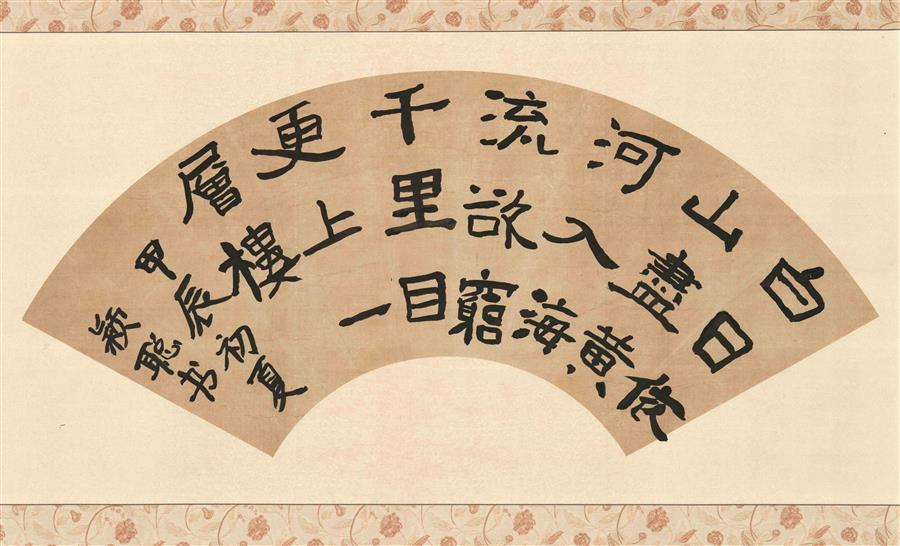 白日依
山盡黄
河入海
流欲窮
千里目
更上一
層樓
甲辰初夏
颖聪书